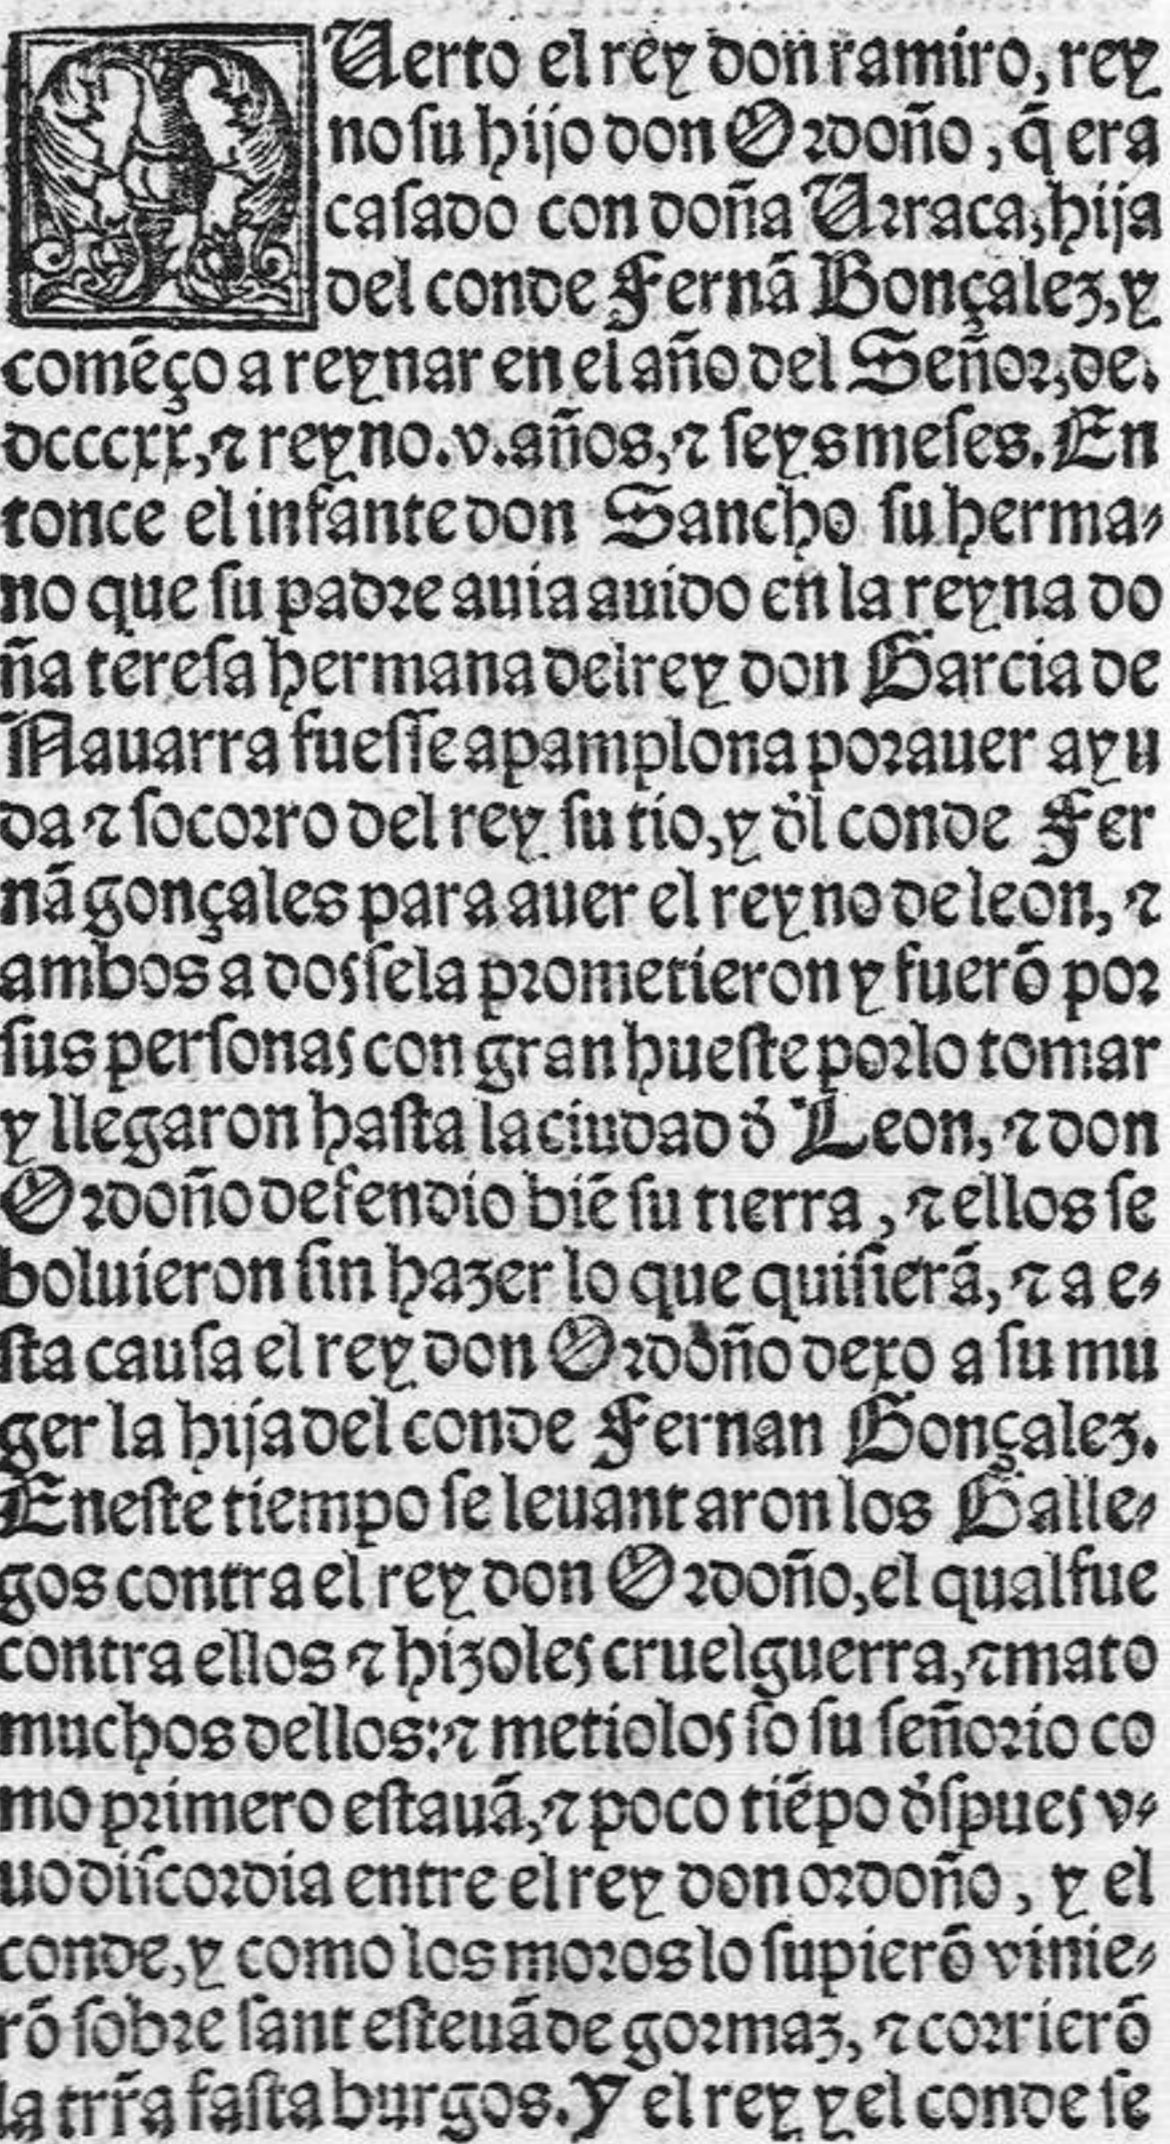 MUerto el rey don ramiro, rey
no ſu hijo don Ordoño, q̃ era
caſado con doña Urraca, hija
del conde Fernã Gonçalez, y
comẽço a reynar en el año del Señor, de.
dcccxx, ⁊ reyno .v. años, ⁊ ſeys meſes. En
tonce el infante don Sancho ſu herma-
no que ſu padre auia auido en la reyna do
ña tereſa hermana del rey don Garcia de
Nauarra fueſſe a pamplona por auer ayu
da ⁊ ſocorro del rey ſu tio, y d̓l conde Fer
nã gonçales para auer el reyno de leon, ⁊
ambos a dos ſela prometieron y fuerõ por
ſus perſonas con gran hueſte por lo tomar
y llegaron haſta la ciudad d̓ Leon, ⁊ don
Ordoño defendio biẽ ſu tierra, ⁊ ellos ſe
boluieron ſin hazer lo que quiſierã, ⁊ a e-
ſta cauſa el rey don Ordoño dexo a ſu mu
ger la hija del conde Fernan Gonçalez.
En eſte tiempo ſe leuantaron los Galle-
gos contra el rey don Ordoño, el qual fue
contra ellos ⁊ hizoles cruel guerra, ⁊ mato
muchos dellos: ⁊ metiolos ſo ſu ſeñorio co
mo primero eſtauã, ⁊ poco tiẽpo d̓ſpues v-
uo diſcordia entre el rey don ordoño, y el
conde, y como los moros lo ſupierõ vinie-
rõ ſobre ſant eſteuã de gormaz, ⁊ corrierõ
la trr̃a faſta burgos. Y el rey y el conde ſe